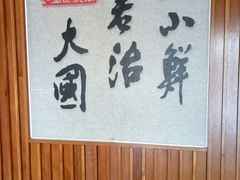 大國
若治
小鮮